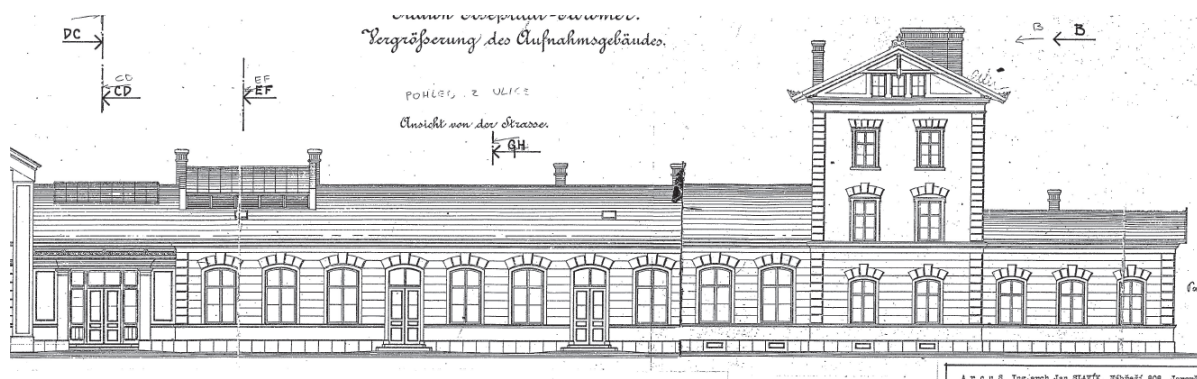 Station Josefstadt-Jaroměř.
Vergrößerung des Aufnahmsgebäudes.
DC
B B
CD
CD
EF
EF
POHLED Z ULICE
Ansicht von der Strasse.
GH
Ing. arch. Jan